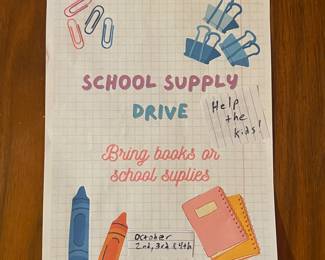 SCHOOL SUPPLY
DRIVE
Help
the
kids!
Bring books or
school suplies
October
2nd, 3rd & 4th